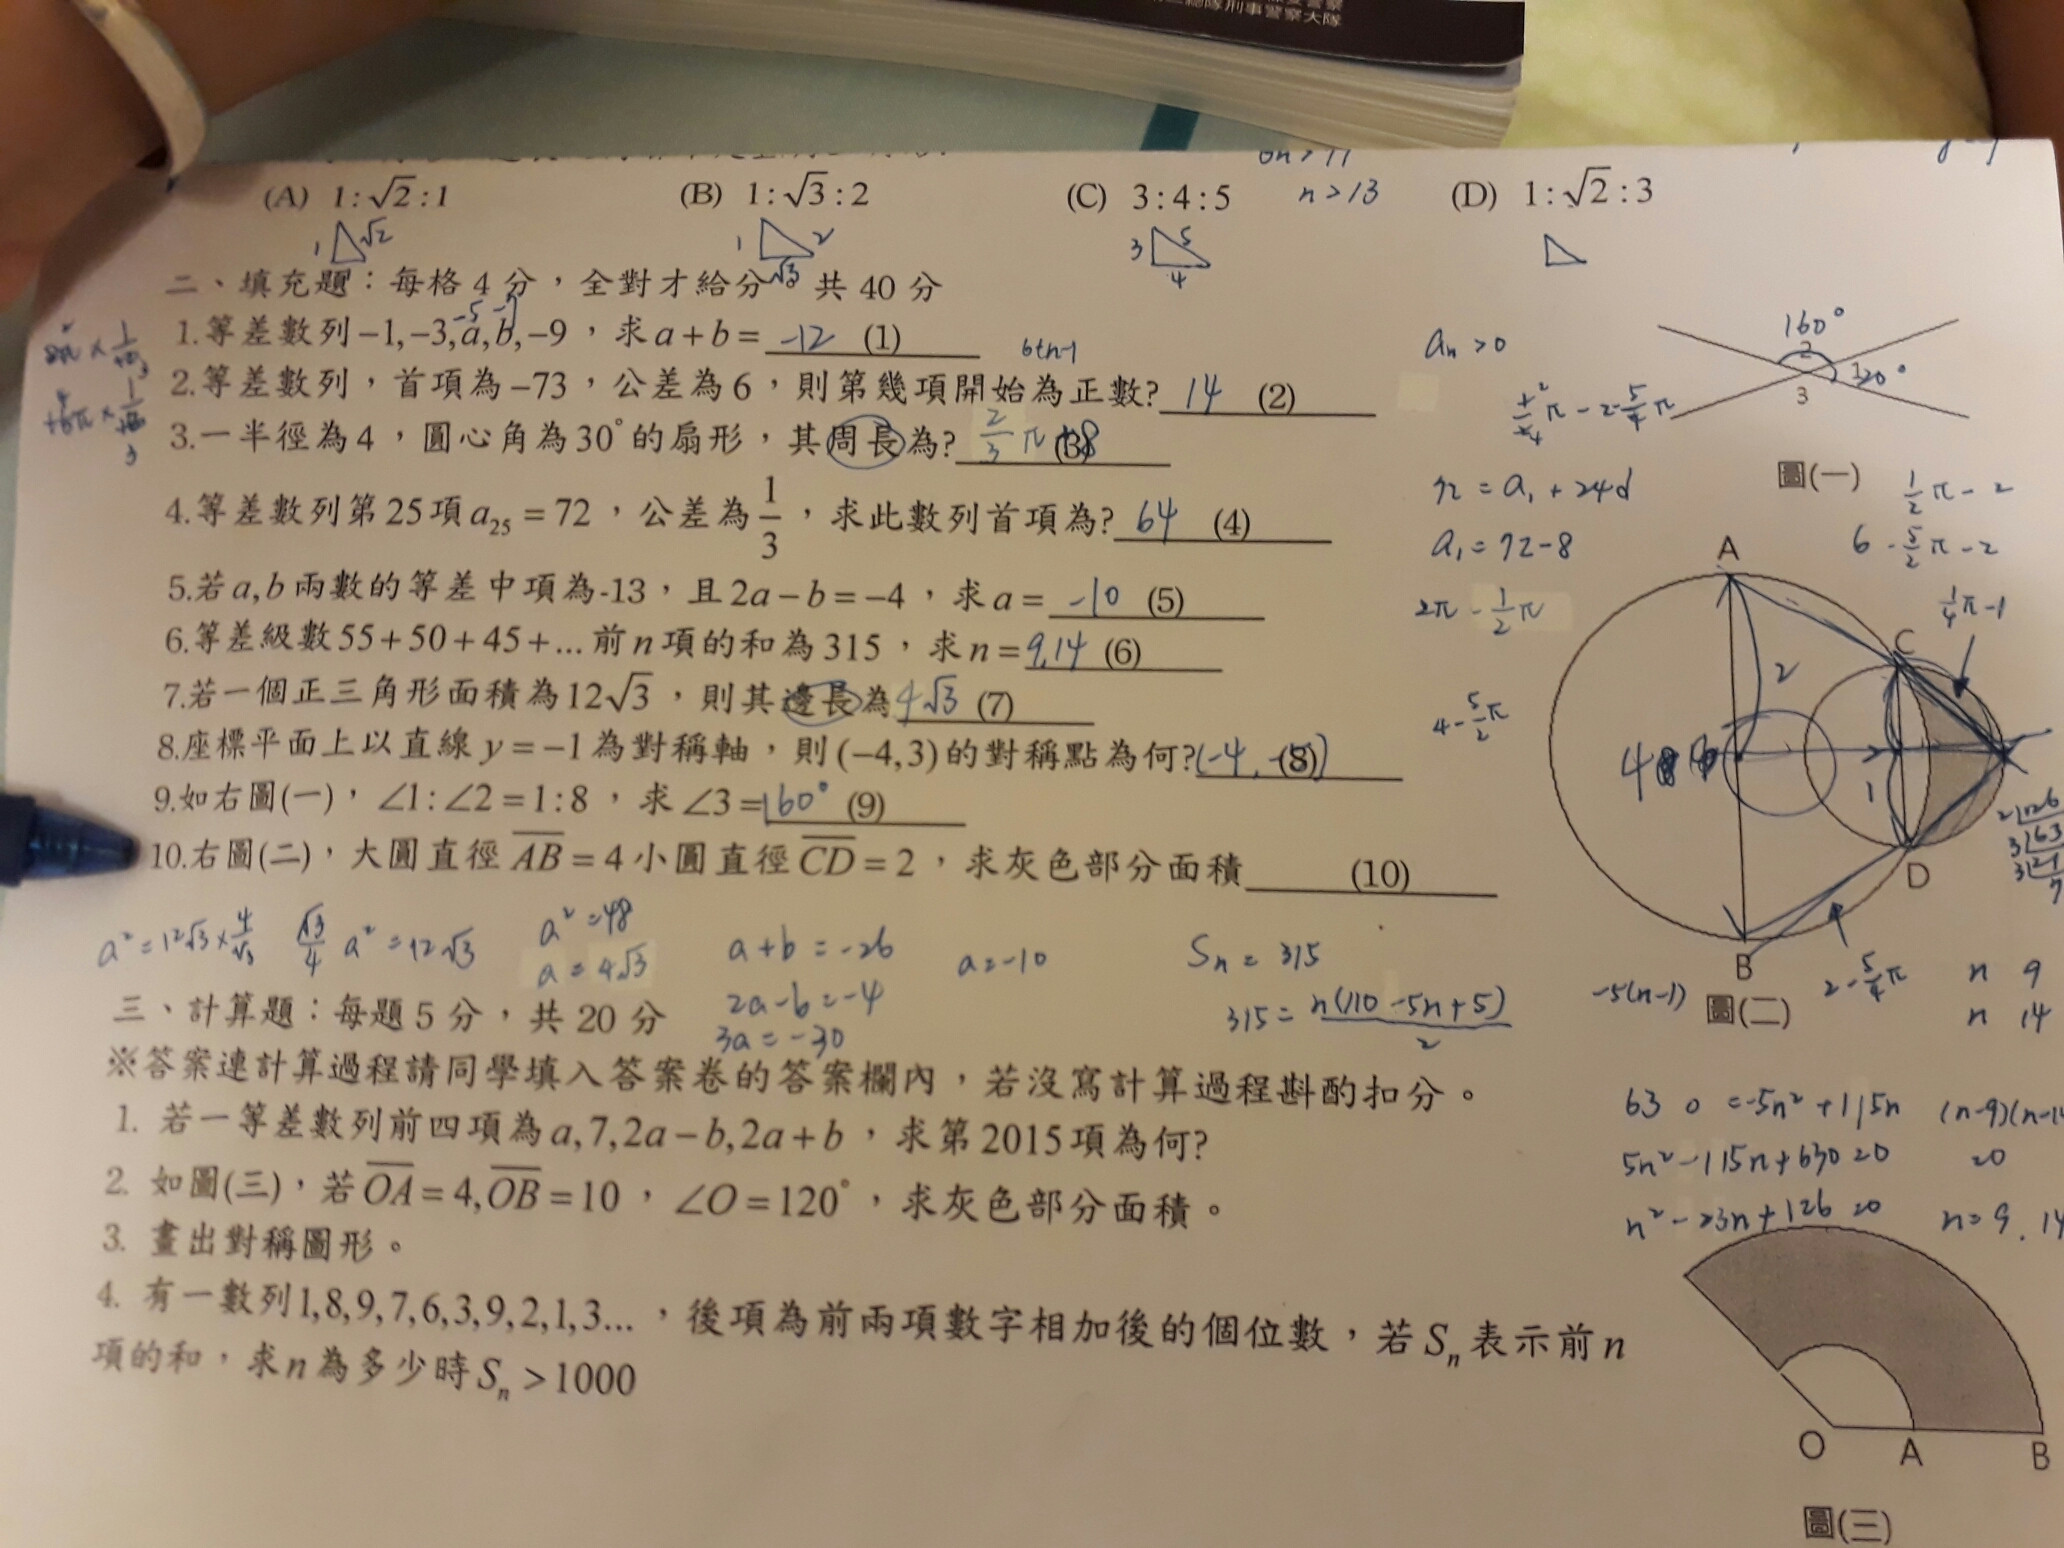 總隊刑事警察大隊
6n > 77
(A) 1:√2:1 (B) 1:√3:2 (C) 3:4:5 n>13 (D) 1:√2:3
1 √2 1 2 √3 3 5 4
二、填充題：每格 4 分，全對才給分 共 40 分
-5 -7
1.等差數列 −1,−3,a,b,−9，求 a+b= -12 (1)
6+n-1
2.等差數列，首項為−73，公差為6，則第幾項開始為正數? 14 (2)
3.一半徑為4，圓心角為30°的扇形，其周長為? 2/3 π +8 (3)
4.等差數列第25項 a₂₅ = 72，公差為 1/3，求此數列首項為? 64 (4)
5.若 a,b 兩數的等差中項為-13，且 2a−b=−4，求 a= -10 (5)
6.等差級數 55+50+45+...前 n 項的和為 315，求 n= 9,14 (6)
7.若一個正三角形面積為12√3，則其邊長為 4√3 (7)
8.座標平面上以直線 y=−1 為對稱軸，則(−4,3)的對稱點為何? (-4, (8)
9.如右圖(一)，∠1:∠2=1:8，求 ∠3= 160° (9)
10.右圖(二)，大圓直徑 AB=4 小圓直徑 CD=2，求灰色部分面積 (10)
aₙ >0
160°
2
1 20°
3
圖(一)
72 = a₁ + 24d
a₁ = 72-8
1/2 π - 2
6 - 5/2 π - 2
2π - 1/2 π
1/4 π - 1
4 - 5/2 π
A
C
2
1
D
B
2 - 5/4 π
圖(二)
a² = 12√3 × 4/√3 √3/4 a² = 12√3 a² = 48
a = 4√3
a + b = -26 a = -10
2a - b = -4
3a = -30
Sn = 315
315 = n(110 -5n+5)/2
-5(n-1)
n 9
n 14
三、計算題：每題 5 分，共 20 分
※答案連計算過程請同學填入答案卷的答案欄內，若沒寫計算過程斟酌扣分。
1. 若一等差數列前四項為 a,7,2a−b,2a+b，求第 2015 項為何?
2. 如圖(三)，若 OA=4,OB=10，∠O=120°，求灰色部分面積。
3. 畫出對稱圖形。
4. 有一數列1,8,9,7,6,3,9,2,1,3...，後項為前兩項數字相加後的個位數，若 Sₙ 表示前 n
項的和，求 n 為多少時 Sₙ >1000
63 0 = -5n² + 115n
5n² - 115n + 630 = 0
n² - 23n + 126 = 0 n = 9, 14
O A B
圖(三)